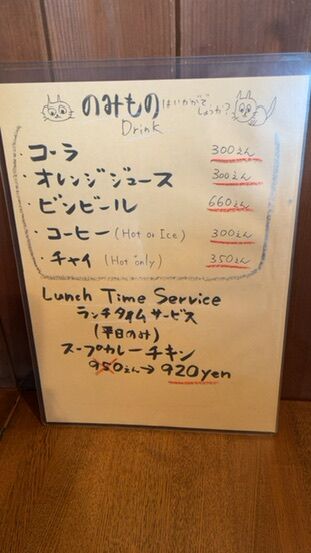 のみもの はいかがでしょうか?
Drink
・コーラ 300えん
・オレンジジュース 300えん
・ビンビール 660えん
・コーヒー (Hot or Ice) 300えん
・チャイ (Hot only) 350えん
Lunch Time Service
ランチタイムサービス
(平日のみ)
スープカレーチキン
950えん→920yen